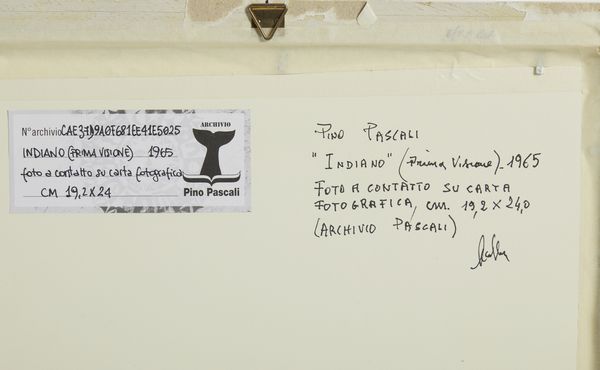 ARCHIVIO
N° archivio
INDIANO (PRIMA VISIONE) 1965
foto a contatto su carta fotografica
CM 19,2 X 24
Pino Pascali
PINO PASCALI
"INDIANO" (PRIMA VISIONE) - 1965
FOTO A CONTATTO SU CARTA
FOTOGRAFICA, CM. 19,2 X 24,0
(ARCHIVIO PASCALI)